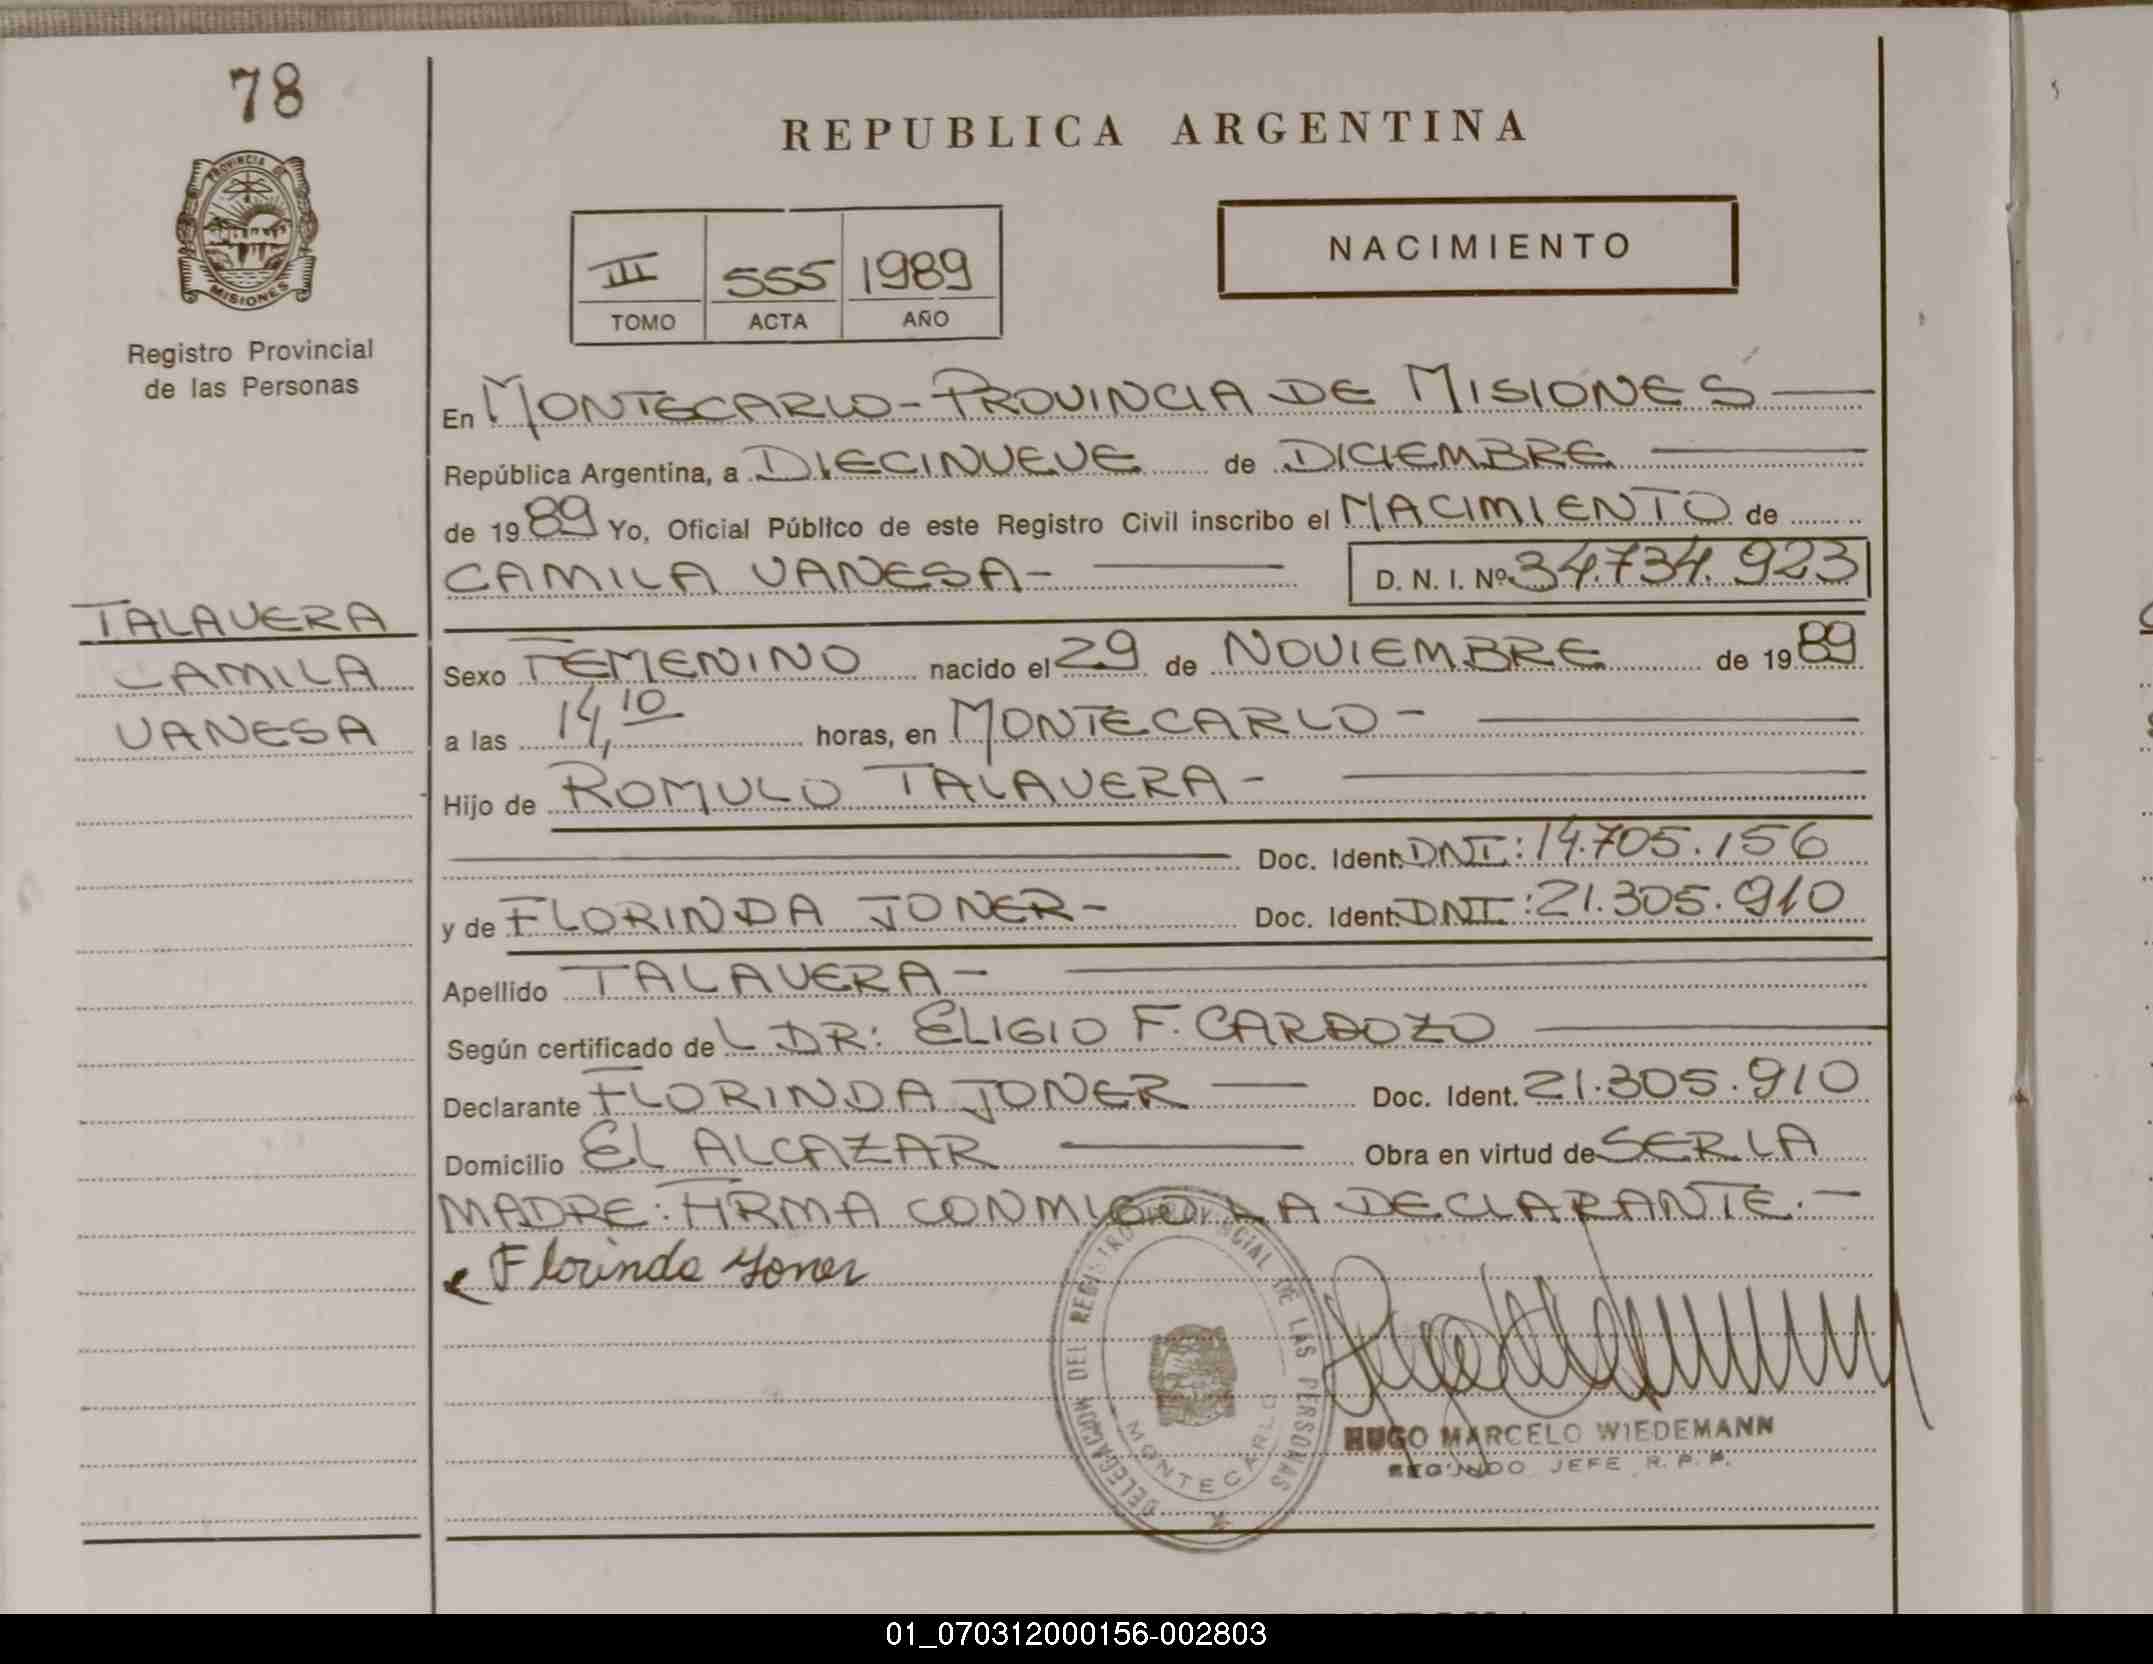 78
PROVINCIA DE
MISIONES
Registro Provincial
de las Personas
TALAVERA
CAMILA
VANESA
REPUBLICA ARGENTINA
III 555 1989
TOMO ACTA AÑO
NACIMIENTO
En MONTECARLO - PROVINCIA DE MISIONES
República Argentina, a DIECINUEVE de DICIEMBRE
de 1989 Yo, Oficial Público de este Registro Civil inscribo el NACIMIENTO de
CAMILA VANESA - D. N. I. Nº 34.734.923
Sexo FEMENINO nacido el 29 de NOVIEMBRE de 1989
a las 14,10 horas, en MONTECARLO -
Hijo de ROMULO TALAVERA -
Doc. Ident. DNI: 14.705.156
y de FLORINDA JONER - Doc. Ident. DNI: 21.305.910
Apellido TALAVERA -
Según certificado de L DR: ELIGIO F. CARDOZO
Declarante FLORINDA JONER Doc. Ident. 21.305.910
Domicilio EL ALCAZAR Obra en virtud de SER LA
MADRE: FIRMA CONMIGO LA DECLARANTE. -
Florinda Joner
DELEGACION DEL REGISTRO PROVINCIAL DE LAS PERSONAS
MONTECARLO
HUGO MARCELO WIEDEMANN
SEGUNDO JEFE R. P. P.
01_070312000156-002803